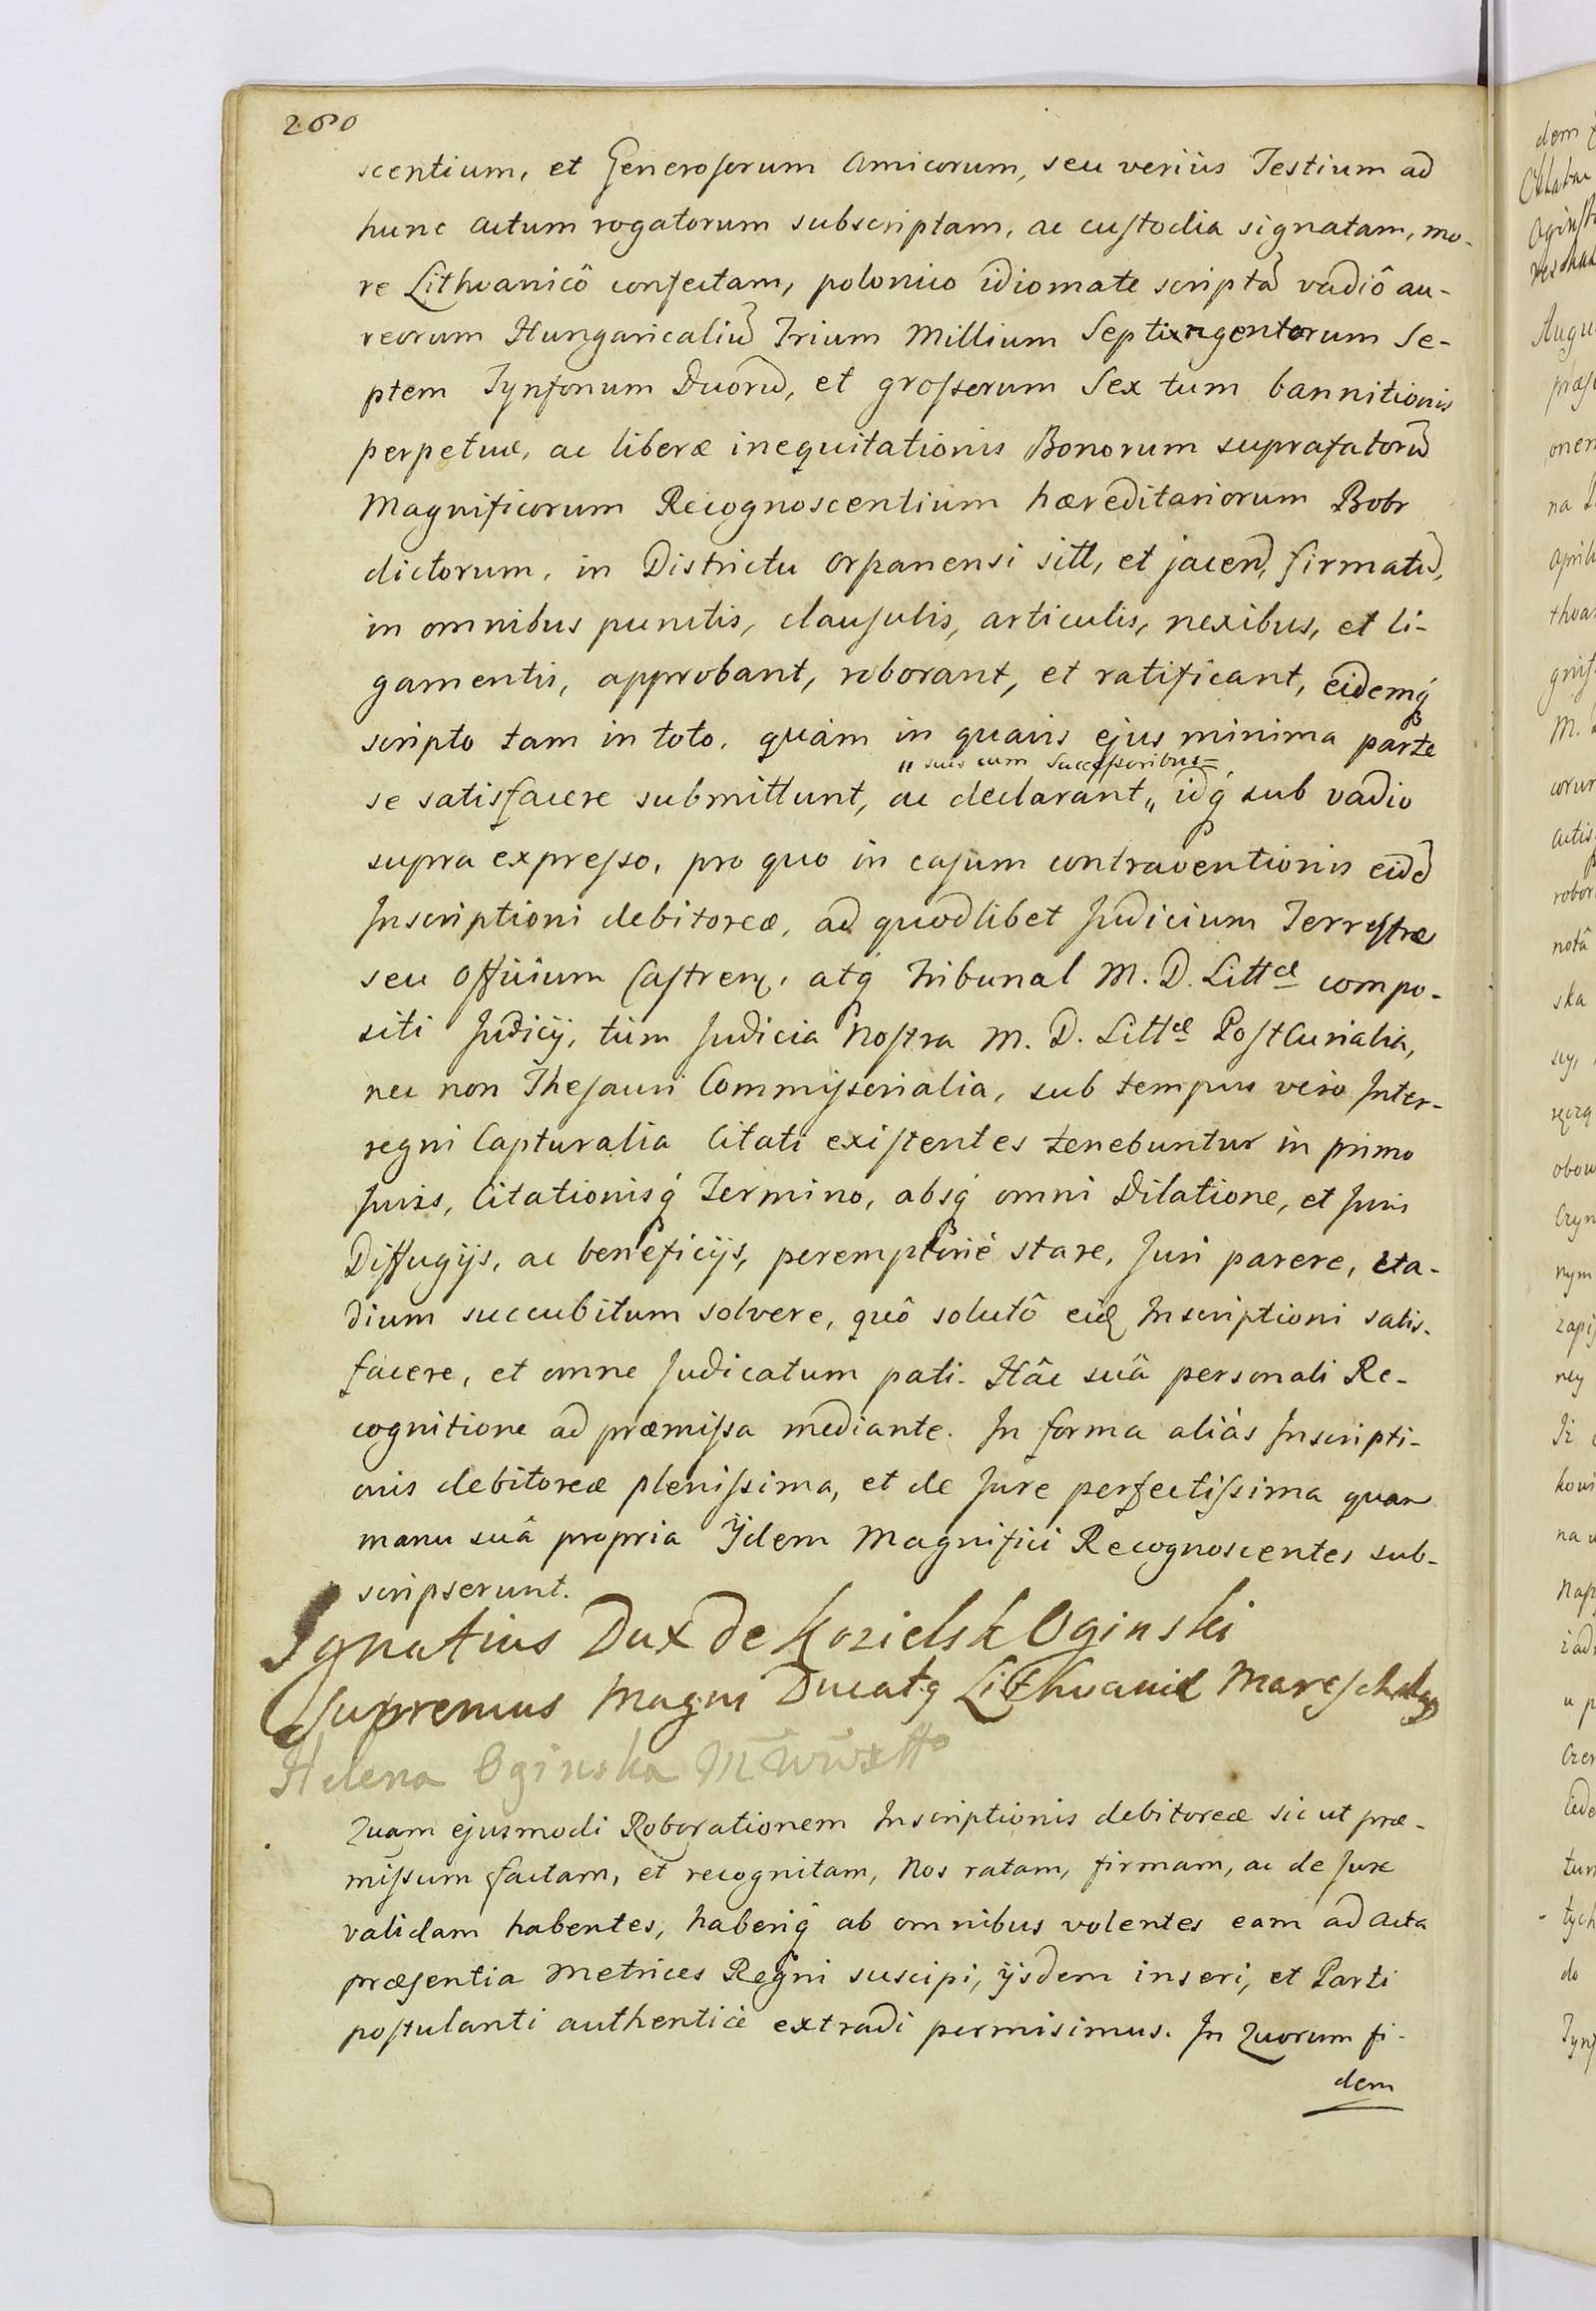 260
scentium, et Generosorum Amicorum, seu veriùs Testium ad
hunc actum rogatorum subscriptam, ac custodia signatam, mo-
re Lithvanicô confectam, polonico idiomate scriptã vadiô au-
reorum Hungaricaliũ Trium Millium Septingentorum Se-
ptem Tynfonum Duorũ, et grosserum Sex tum bannitionis
perpetuæ, ac liberæ inequitationis Bonorum suprafatorũ
Magnificorum Recognoscentium hæreditariorum Bobr
dictorum, in Districtu Orszanensi sitt, et jacen, firmatã,
in omnibus punctis, clausulis, articulis, nexibus, et li-
gamentis, approbant, roborant, et ratificant, eidemq́
scripto tam in toto, quàm in quavis ejus minima parte
„ suis cum Successoribus =
se satisfacere submittunt, ac declarant „ idq́ sub vadio
supra expresso, pro quo in casum contraventionis eidẽ
Inscriptioni debitoreæ, ad quodlibet Judicium Terrestræ
seu Officium Castren, atq́ Tribunal M. D. Littæ compo-
siti Judicij, tùm Judicia Nostra M. D. Littæ PostCurialia,
nec non Thesauri Commisorialia, sub tempus verò Inter-
regni Capturalia Citati existentes tenebuntur in primo
Juris, Citationisq́ Termino, absq́ omni Dilatione, et Juris
Diffugijs, ac beneficijs, peremptoriè stare, Juri parere, Va-
dium succubitum solvere, quô solutô eid Inscriptioni satis-
facere, et omne Judicatum pati. Hâc suâ personali Re-
cognitione ad præmissa mediante. In forma aliàs Inscripti-
onis debitoreæ plenissima, et de Jure perfectissima quam
manu suâ propria Ijdem Magnifici Recognoscentes sub-
scripserunt.
Ignatius Dux de Kozielsk Oginski
Supremus Magni Ducatq Lithvaniæ Mareschalus
Helena Oginska
Quam ejusmodi Roborationem Inscriptionis debitoreæ sic ut præ-
missum factam, et recognitam, Nos ratam, firmam, ac de Jure
validam habentes, haberiq́ ab omnibus volentes eam ad Acta
præsentia Metrices Regni suscipi, ijsdem inseri, et Parti
postulanti authenticè extradi permisimus. In Quorum fi-
dem